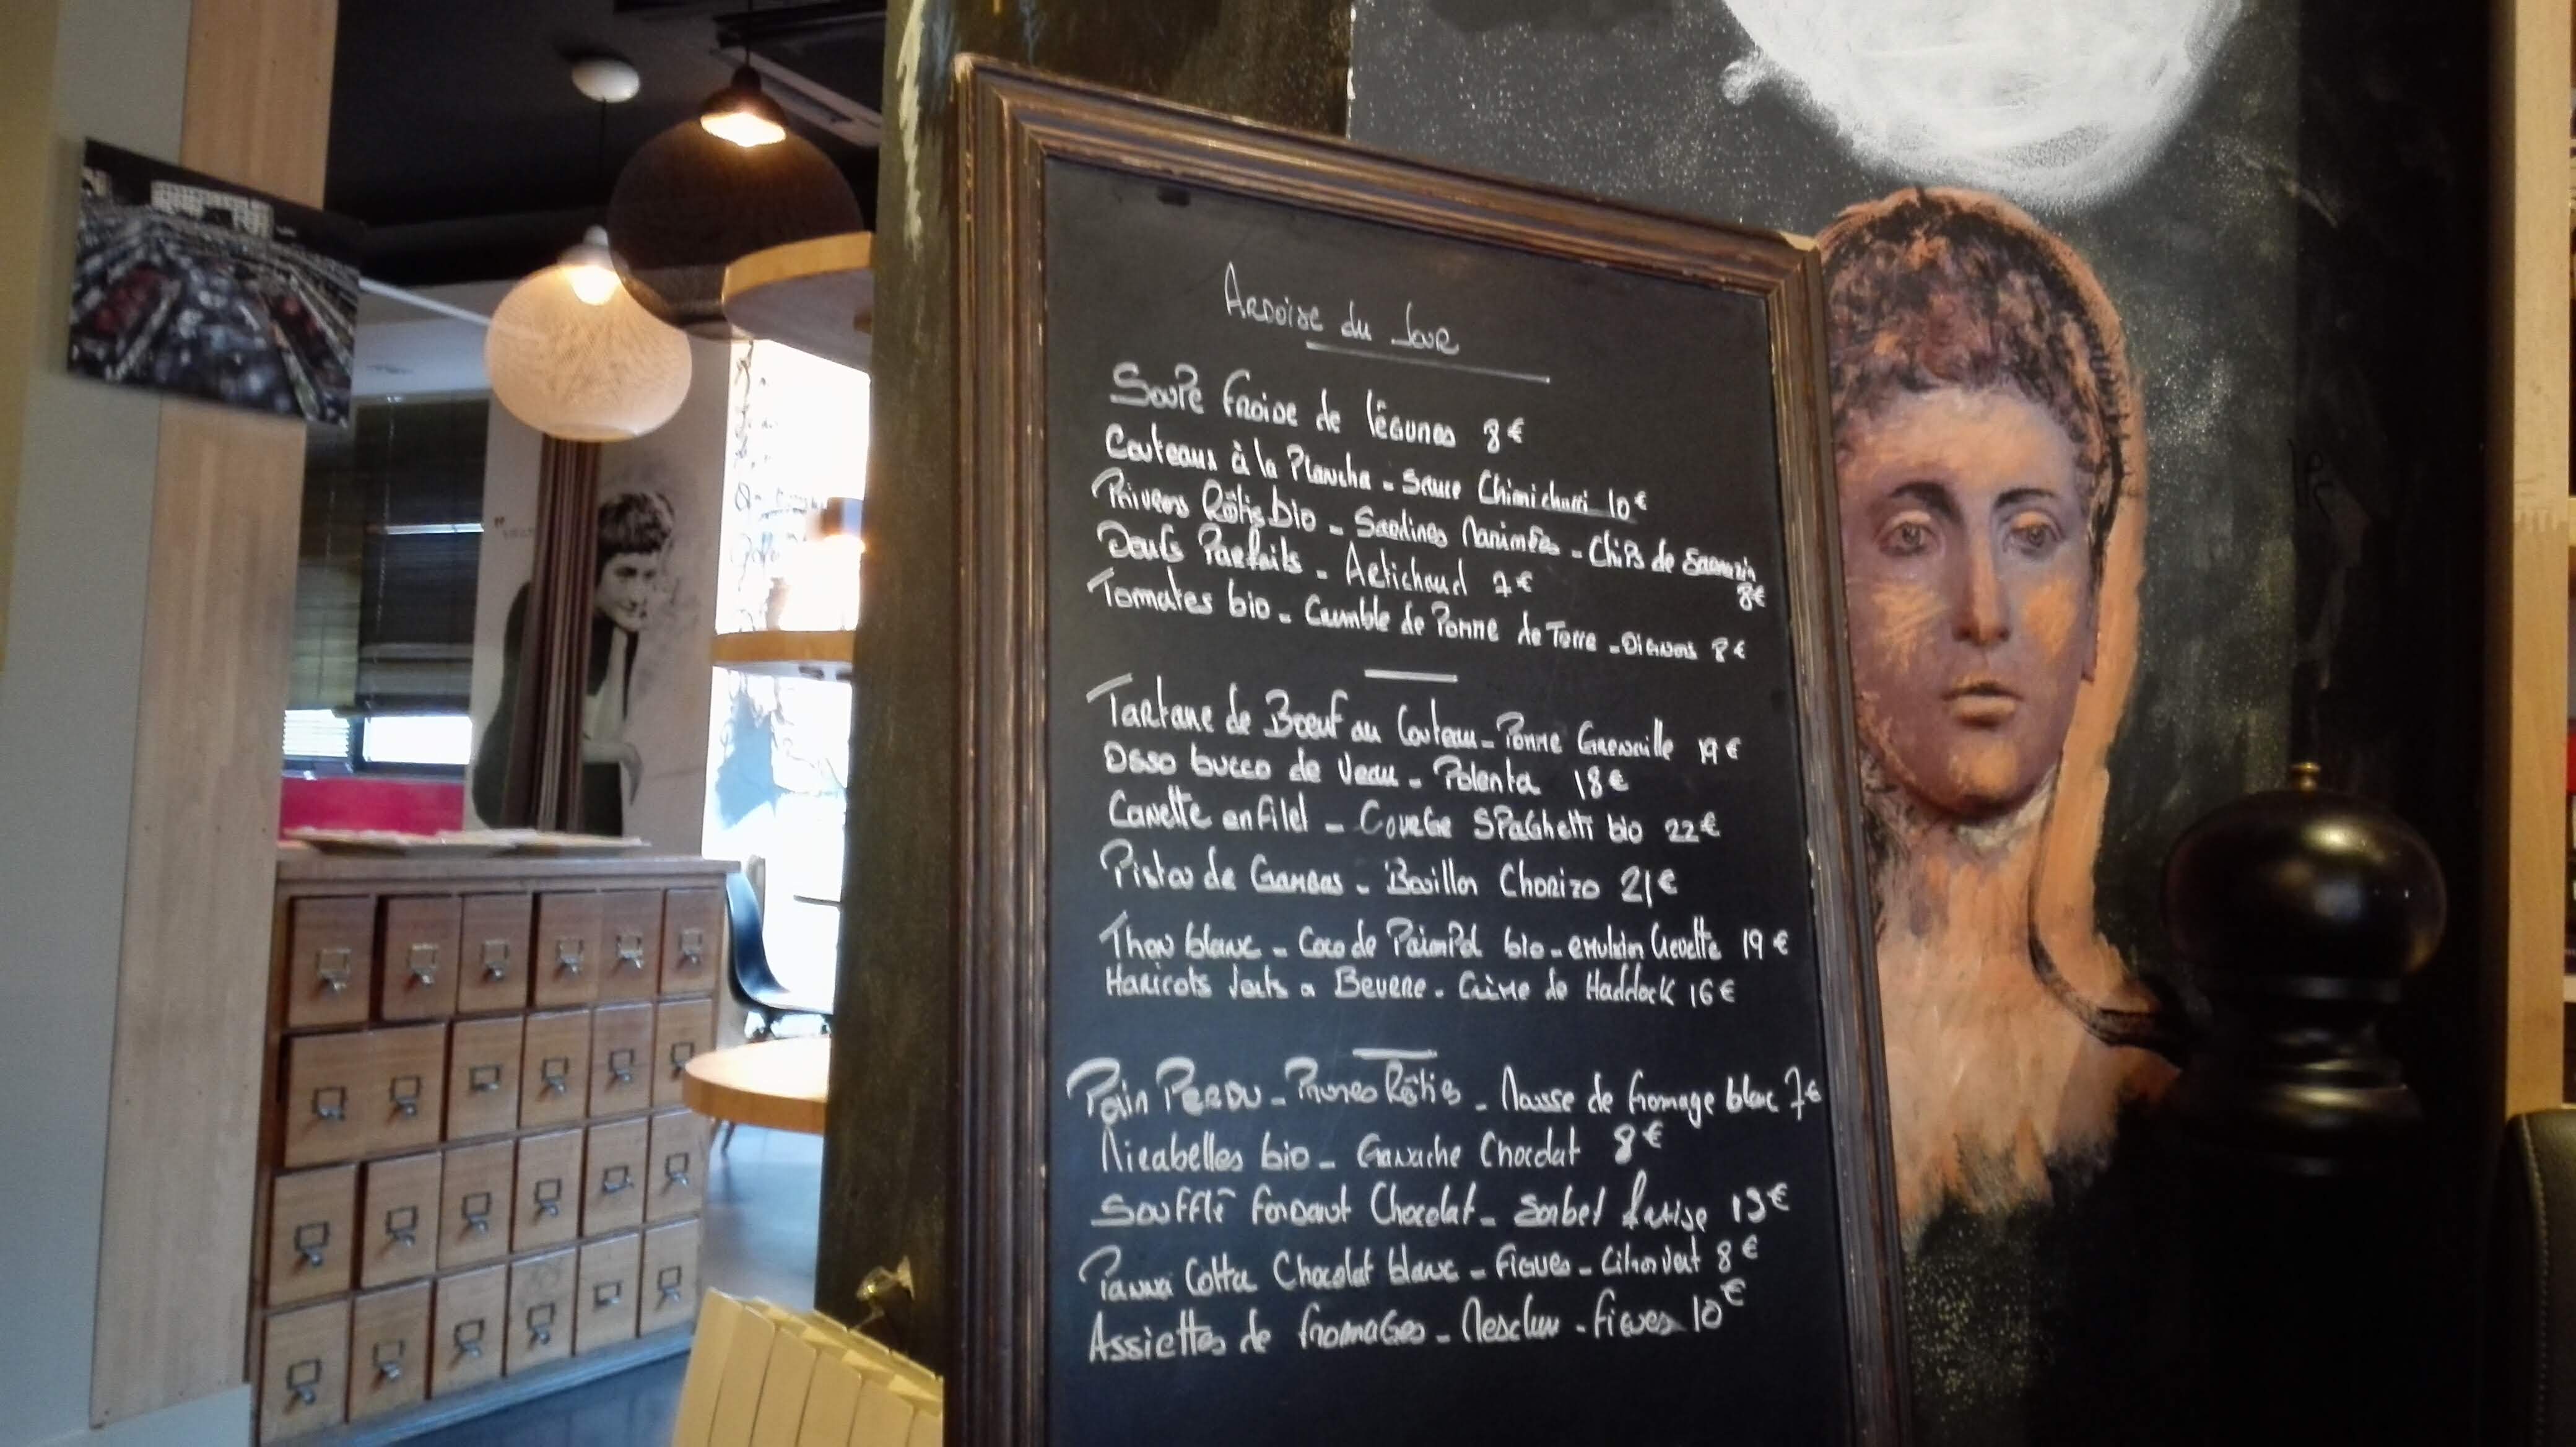 Ardoise du Jour
Soupe froide de légumes 8€
Couteaux à la Plancha - Sauce Chimichurri 10€
Poivrons Rôtis bio - Sardines Marinées - Chips de Sarrazin
8€
Oeufs Parfaits - Artichaud 7€
Tomates bio - Crumble de Pomme de Terre - Oignons 8€
Tartare de Bœuf au Couteau - Pomme Grenaille 19€
Osso bucco de Veau - Polenta 18€
Canette en Filet - Courge SPaGhetti bio 22€
Pistou de Gambas - Bouillon Chorizo 21€
Thon blanc - Coco de PaimPol bio - emulsion Crevette 19€
Haricots Verts a Beurre - Crème de Haddock 16€
Pain Perdu - Prunes Rôties - Mousse de fromage blanc 7€
Mirabelles bio - Ganache Chocolat 8€
Soufflé fondant Chocolat - Sorbet 13€
Panna Cotta Chocolat blanc - Figues - Citron Vert 8€
Assiettes de fromages - Mesclun - Figues 10€